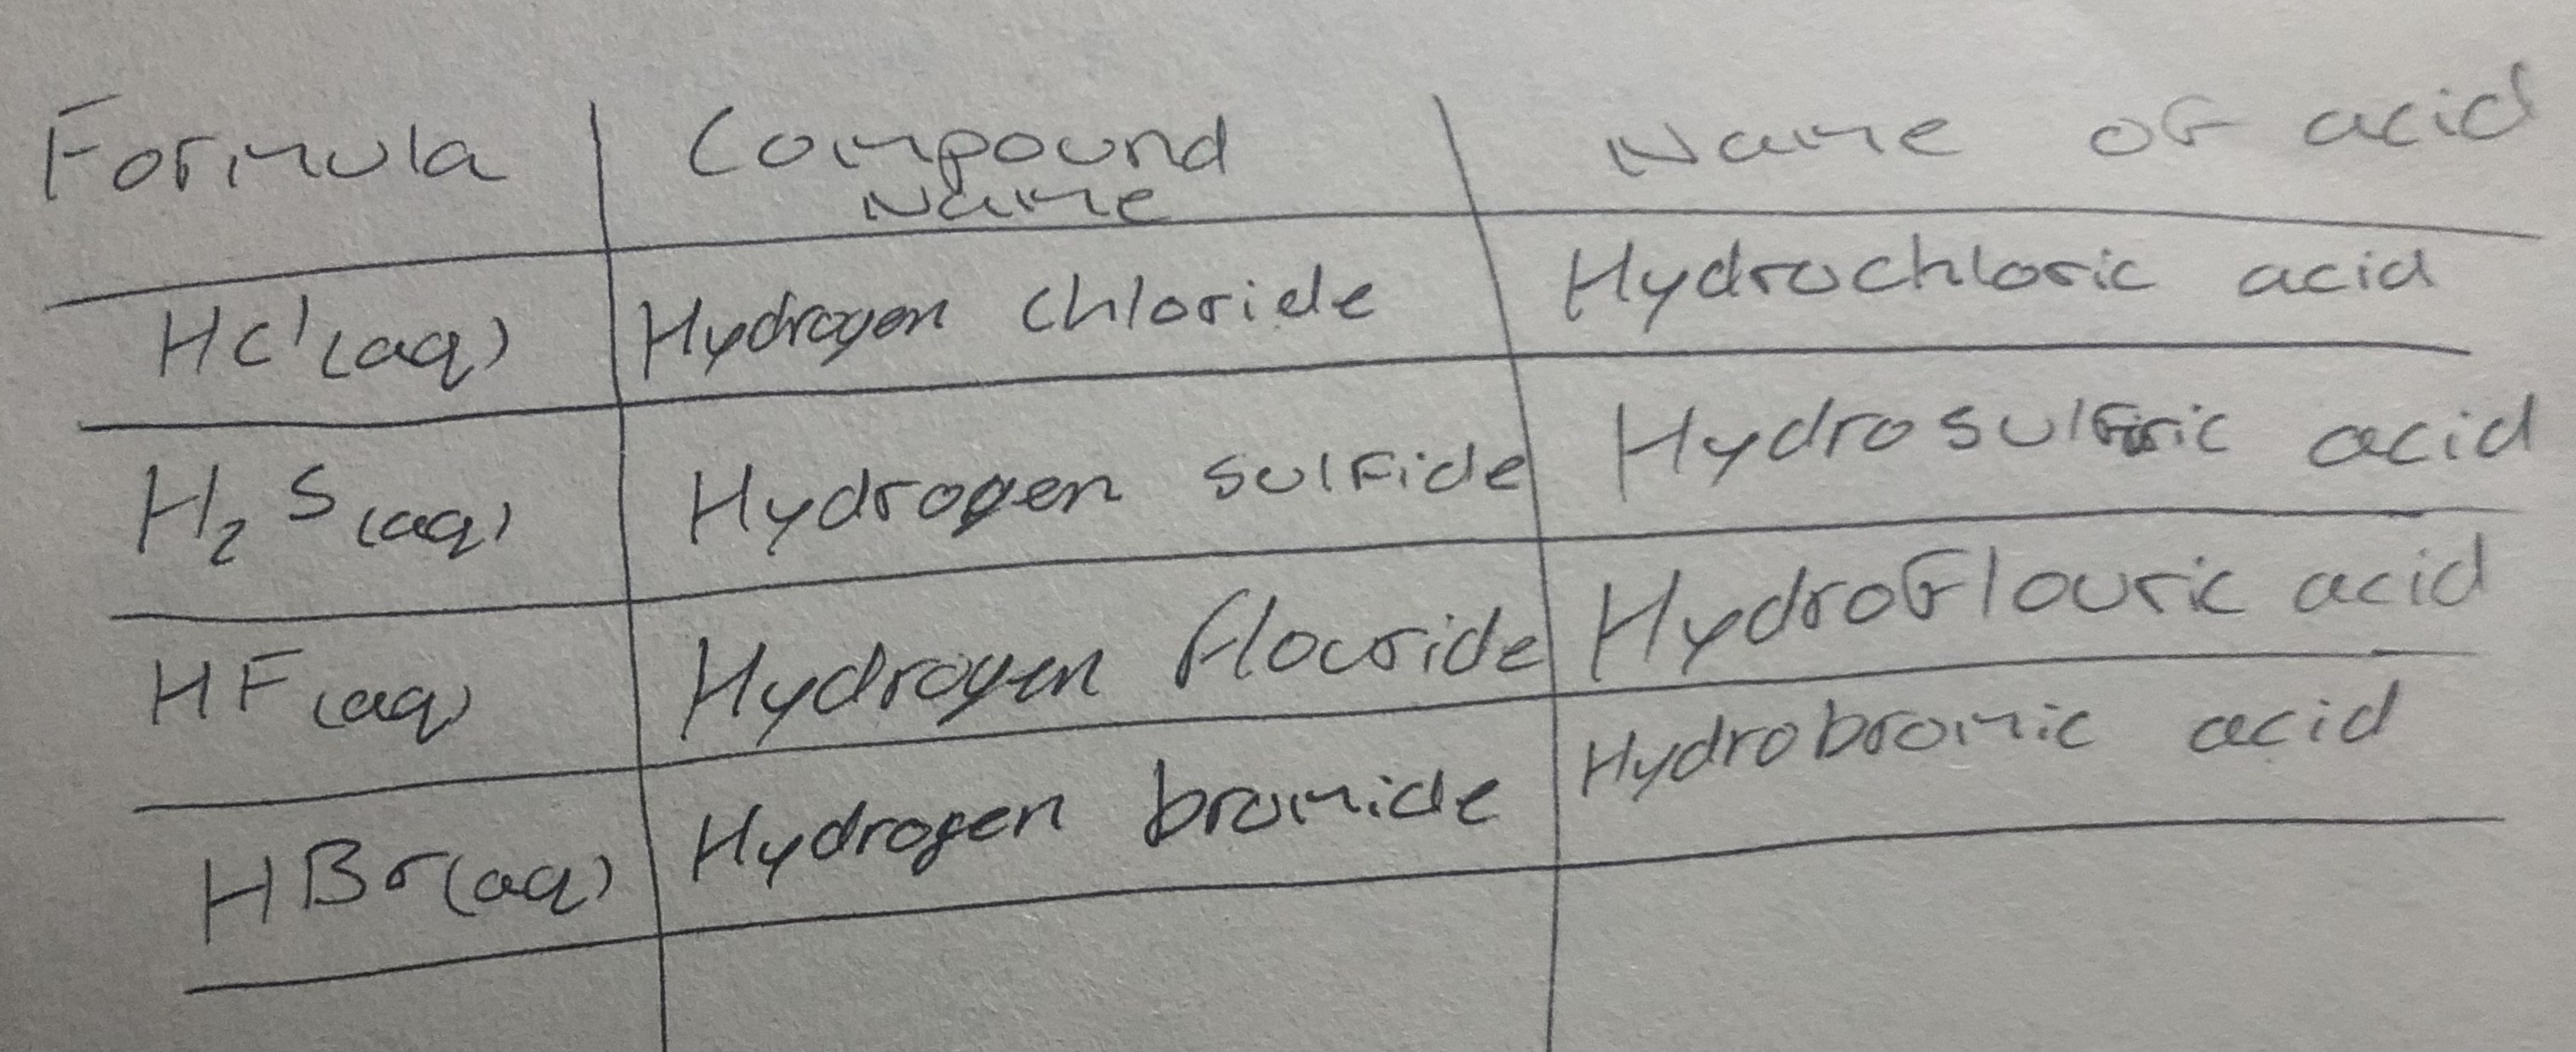 Formula Compound Name Name of acid
HCl(aq) Hydrogen chloride Hydrochloric acid
H₂S(aq) Hydrogen sulfide Hydrosulfuric acid
HF(aq) Hydrogen flouride Hydroflouric acid
HBr(aq) Hydrogen bromide Hydrobromic acid